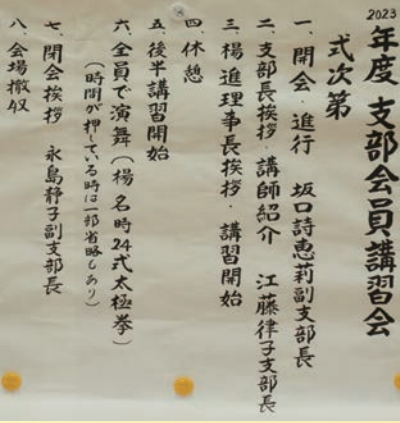 2023年度 支部会員講習会
式次第
一、開会・進行 坂口詩恵莉副支部長
二、支部長挨拶・講師紹介 江藤律子支部長
三、楊進理事長挨拶・講習開始
四、休憩
五、後半講習開始
六、全員で演舞(楊名時24式太極拳)
(時間が押している時は一部省略もあり)
七、閉会挨拶 永島静子副支部長
八、会場撤収